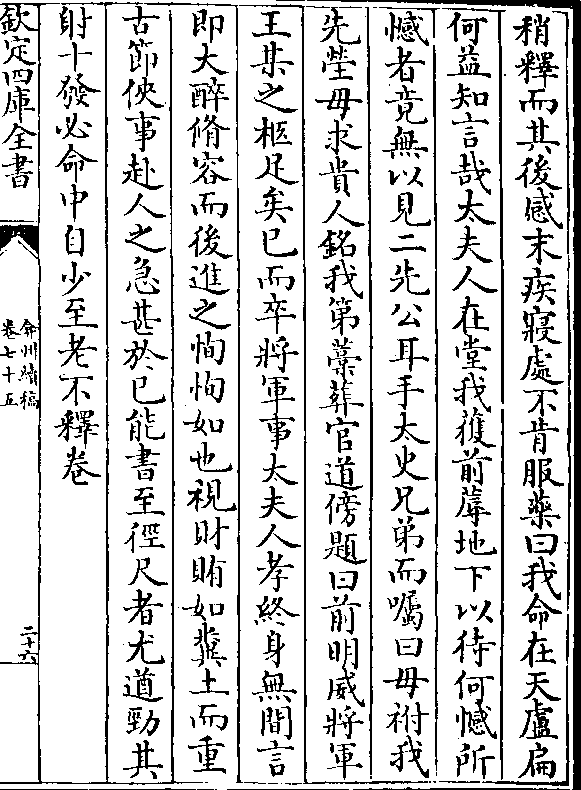 稍釋而其後感末疾寢處不肯服藥曰我命在天盧扁
何益知言哉太夫人在堂我獲前蓐地下以待何憾所
憾者竟無以見二先公耳手太史兄弟而囑曰毋祔我
先塋毋求貴人銘我第藁葬官道傍題曰前明威將軍
王某之柩足矣已而卒將軍事太夫人孝終身無間言
即大醉脩容而後進之恂恂如也視財賄如糞土而重
古節俠事赴人之急甚於已能書至徑尺者尤遒勁其
射十發必命中自少至老不釋卷
欽定四庫全書
弇州續稿
卷七十五
二十六